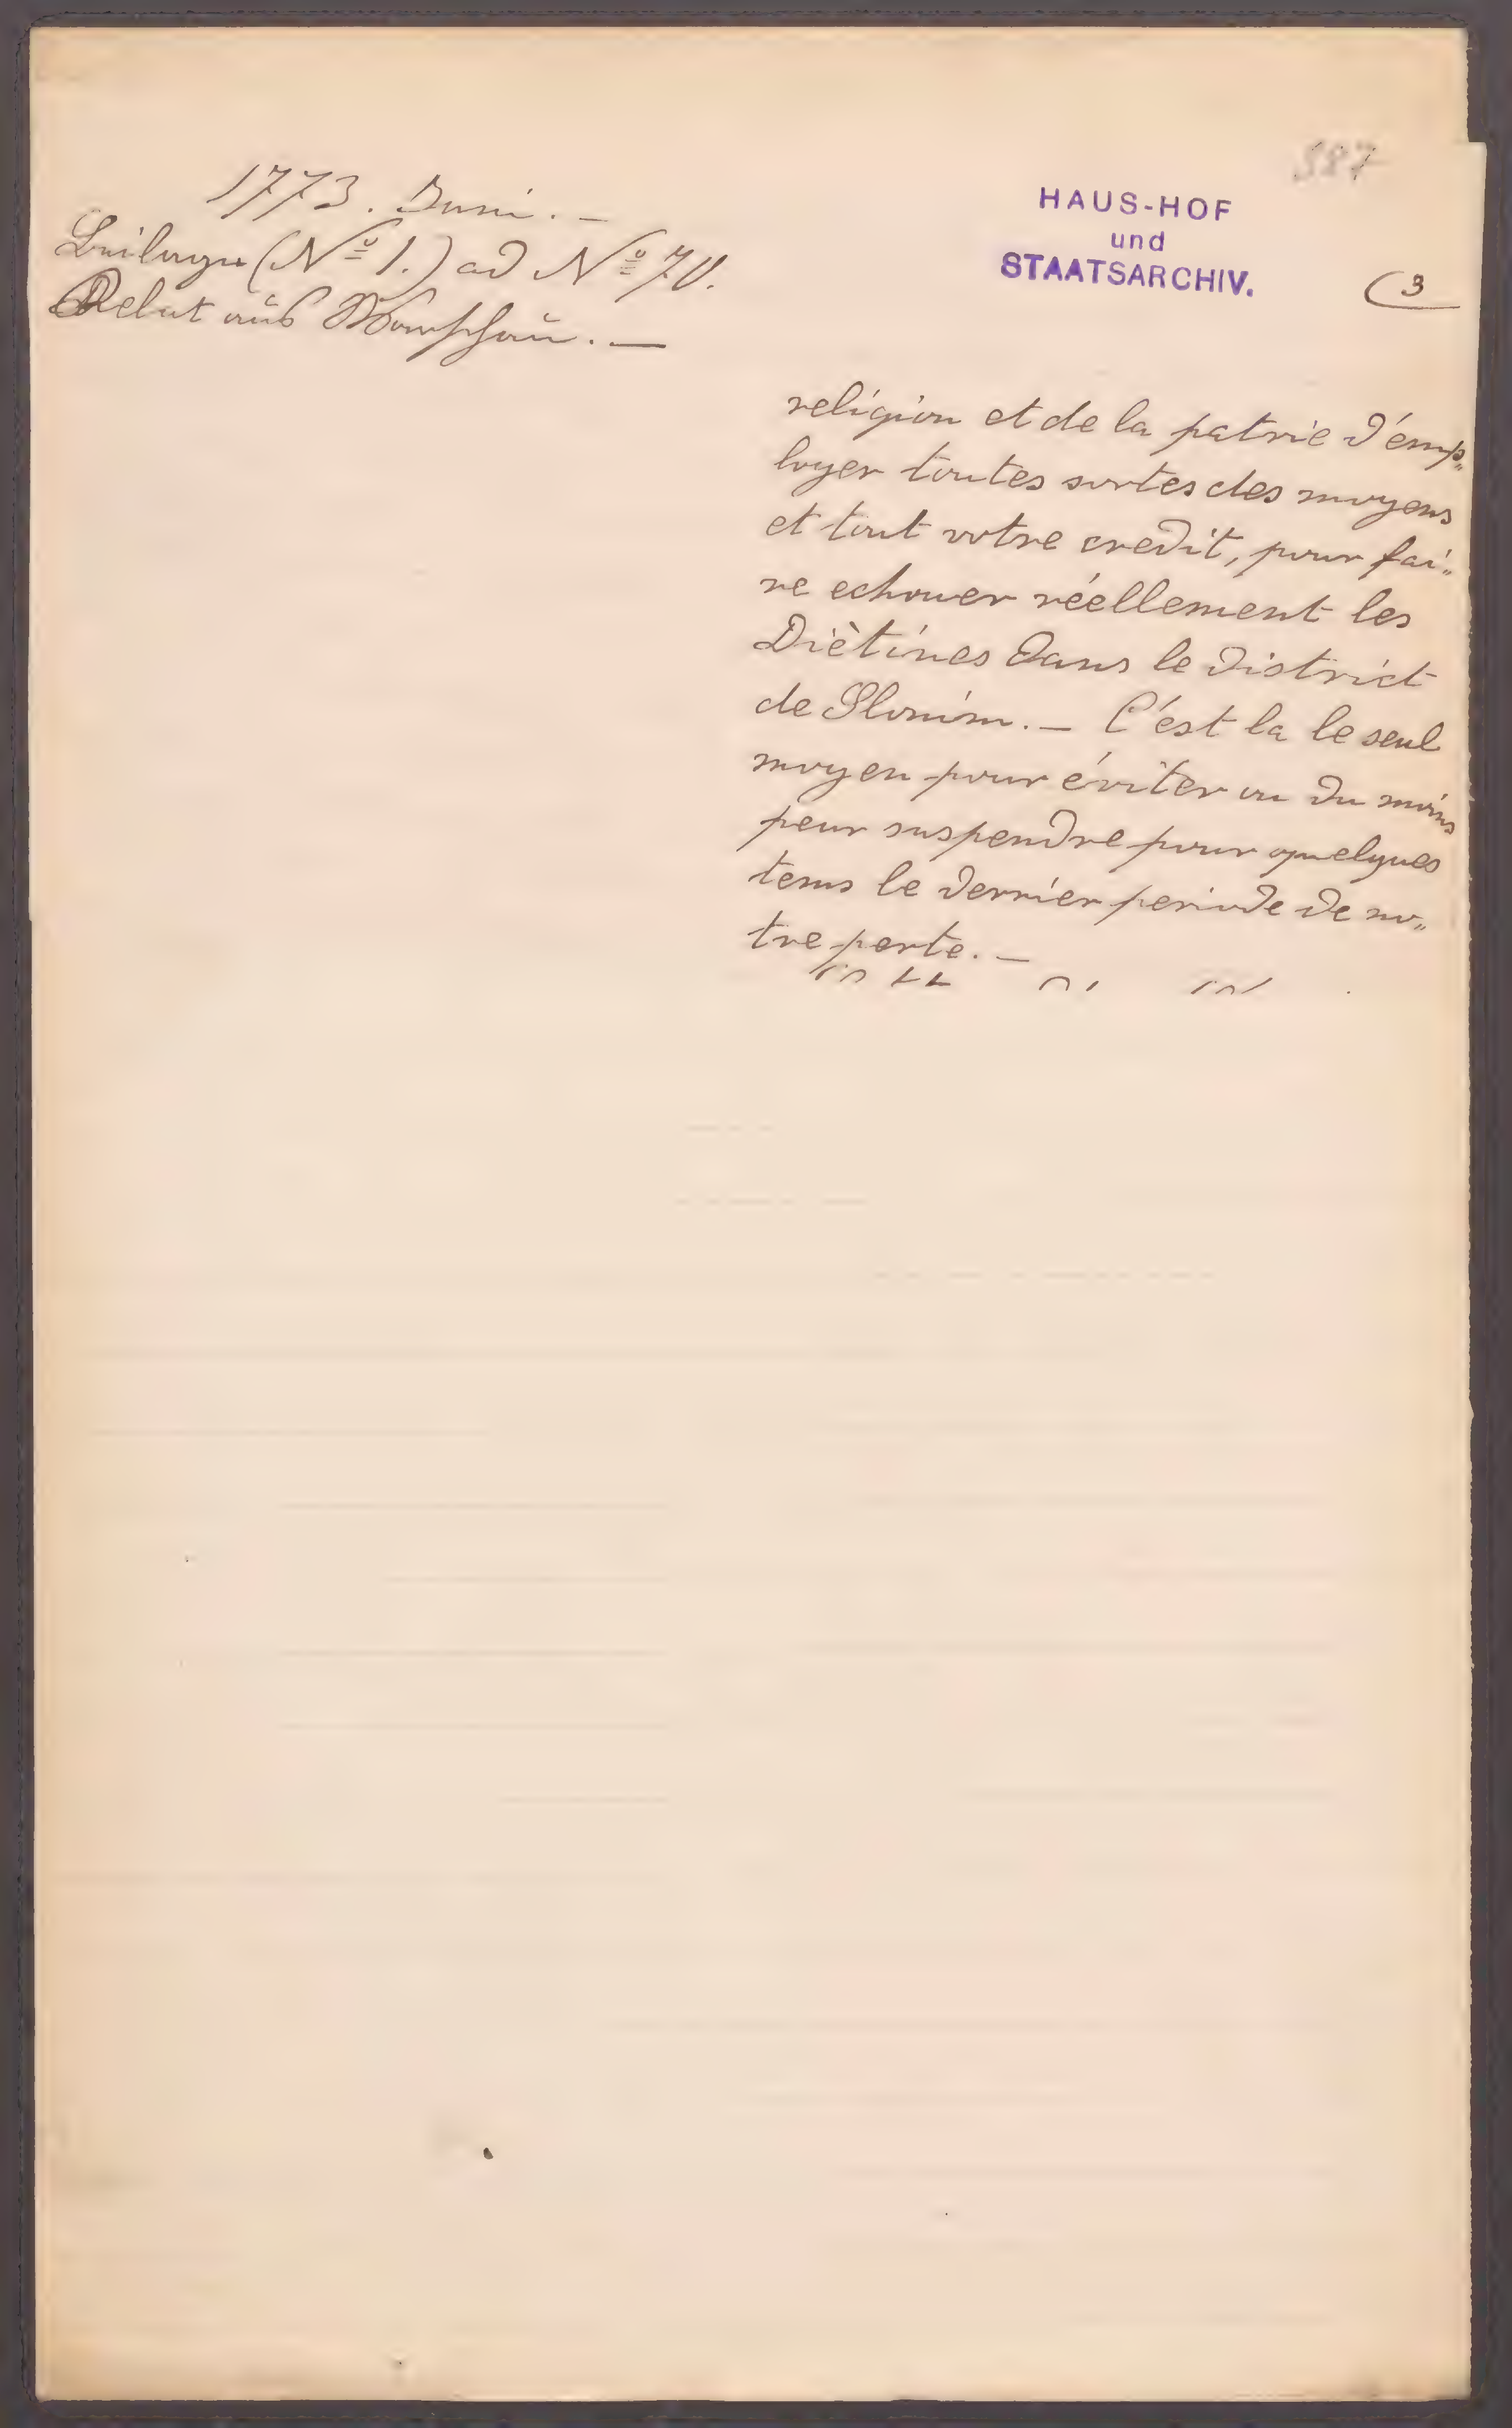 387
1773. Juni. —
Beilage (Nº 1.) ad Nº 70.
Relat aus Warschau. —
HAUS-HOF
und
STAATSARCHIV.
3
religion et de la patrie d'emp„
loyer toutes sortes des moyens
et tout votre credit, pour fai„
re echouer réellement les
Diètines dans le District
de Slonim. — C'est la le seul
moyen pour éviter ou du moins
peur suspendre pour quelques
tems le dernier periode de no„
tre perte. —